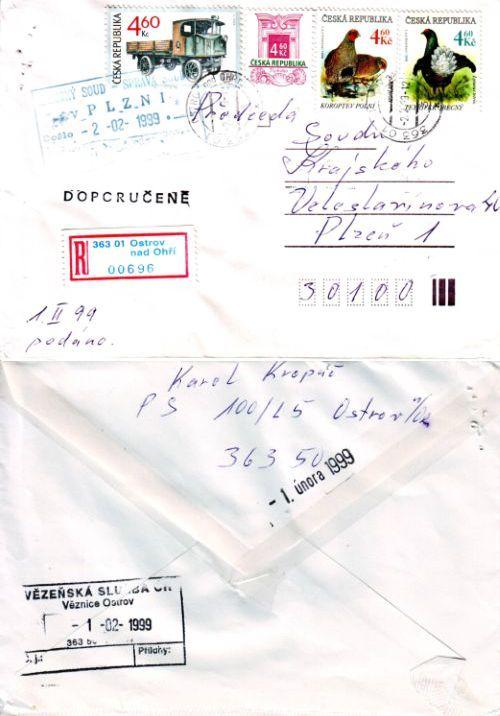 4 60 Kč
ČESKÁ REPUBLIKA
4 60 Kč
ČESKÁ REPUBLIKA
ČESKÁ REPUBLIKA
4 60 Kč
KOROPTEV POLNÍ
ČESKÁ REPUBLIKA
4 60 Kč
SOUD
V PLZNI
Došlo - 2 -02- 1999
363 01
Předseda
Soudu
Krajského
Veleslavínova 40
Plzeň 1
DOPORUČENĚ
R
363 01 Ostrov
nad Ohří
00696
30100
1. II 99
podáno.
Karel Kropáč
PS 100/L5 Ostrov n/Oh
363 50
- 1. února 1999
VĚZEŇSKÁ SLUŽBA ČR
Věznice Ostrov
- 1 -02- 1999
363 50
Přílohy: